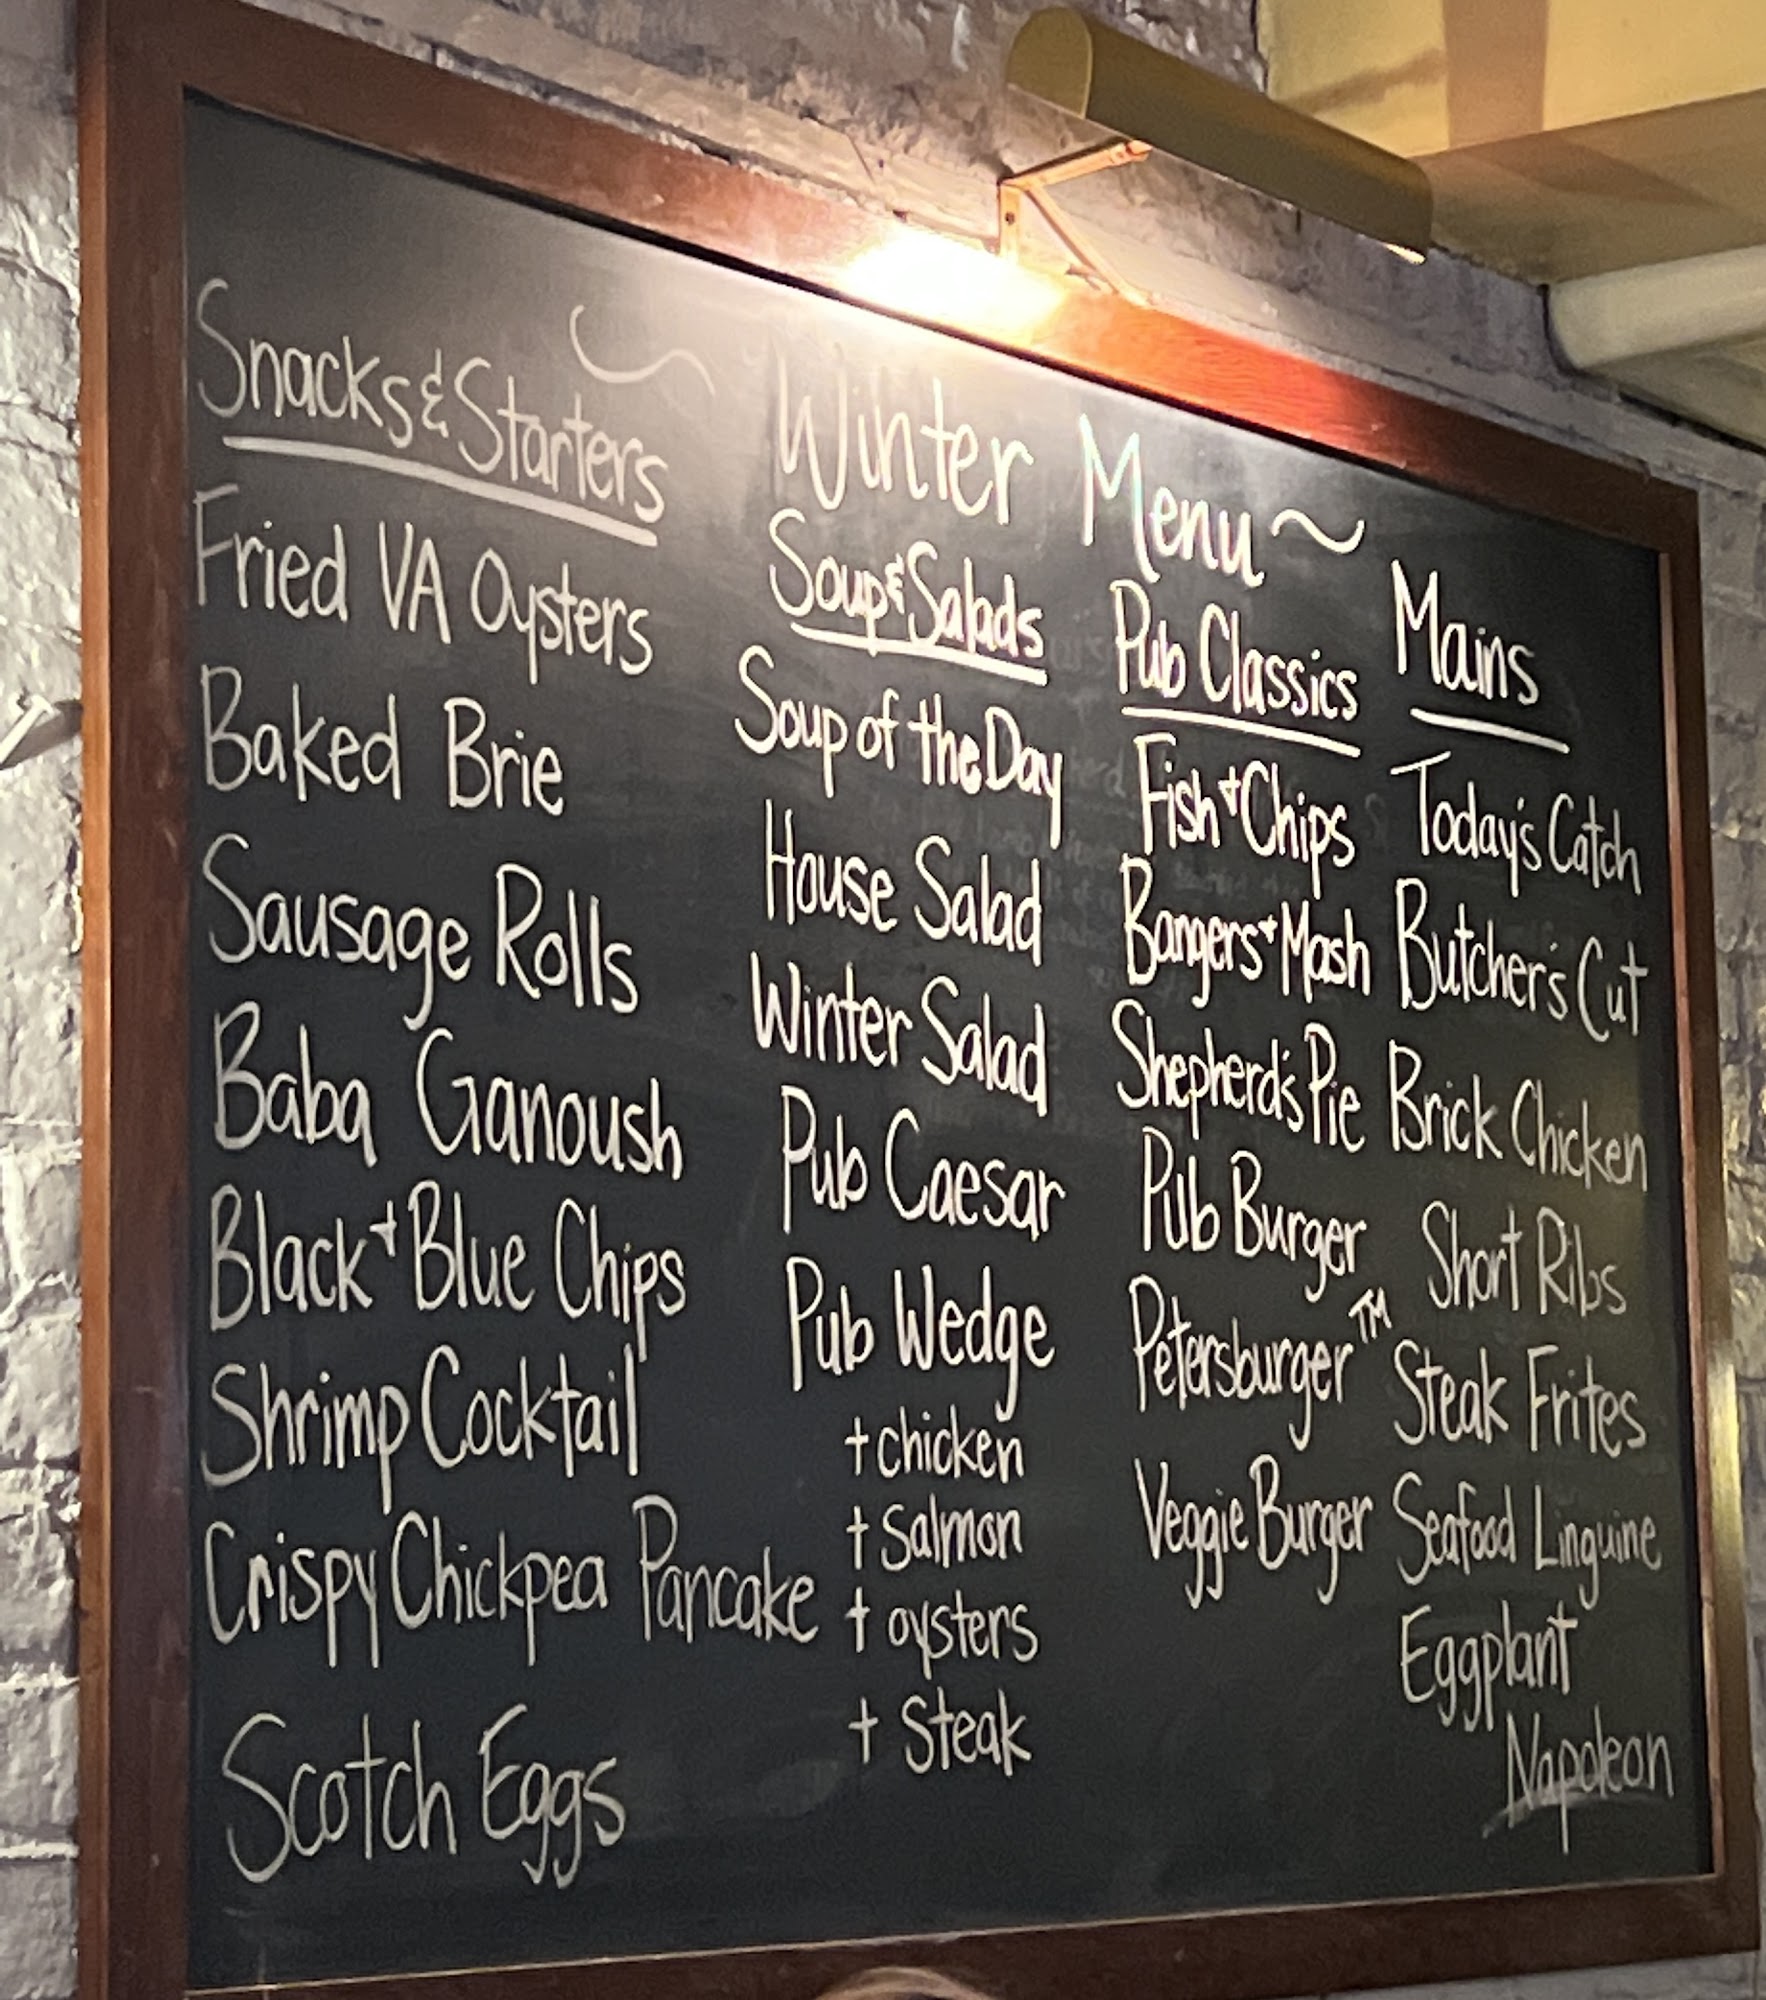 ~ Winter Menu ~
Snacks & Starters
Fried VA Oysters
Baked Brie
Sausage Rolls
Baba Ganoush
Black + Blue Chips
Shrimp Cocktail
Crispy Chickpea Pancake
Scotch Eggs
Soup & Salads
Soup of the Day
House Salad
Winter Salad
Pub Caesar
Pub Wedge
+ chicken
+ Salmon
+ oysters
+ Steak
Pub Classics
Fish + Chips
Bangers + Mash
Shepherd's Pie
Pub Burger
Petersburger™
Veggie Burger
Mains
Today's Catch
Butcher's Cut
Brick Chicken
Short Ribs
Steak Frites
Seafood Linguine
Eggplant
Napoleon